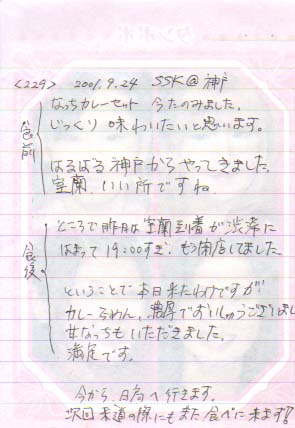 <229> 2001.9.24 SSK@神戸
食前
なっちカレーセット 今たのみました。
じっくり味わいたいと思います。
はるばる神戸からやってきました。
室蘭、いい所ですね
食後
ところで昨日は室蘭到着が渋滞に
はまって19:00すぎ、もう閉店してました。
ということで本日来たわけですが!!
カレーらーめん、濃厚でおいしゅうございまし
なっちもいただきました。
満足です。
今から、日高へ行きます。
次回来道の際にもまた食べに来ます!!